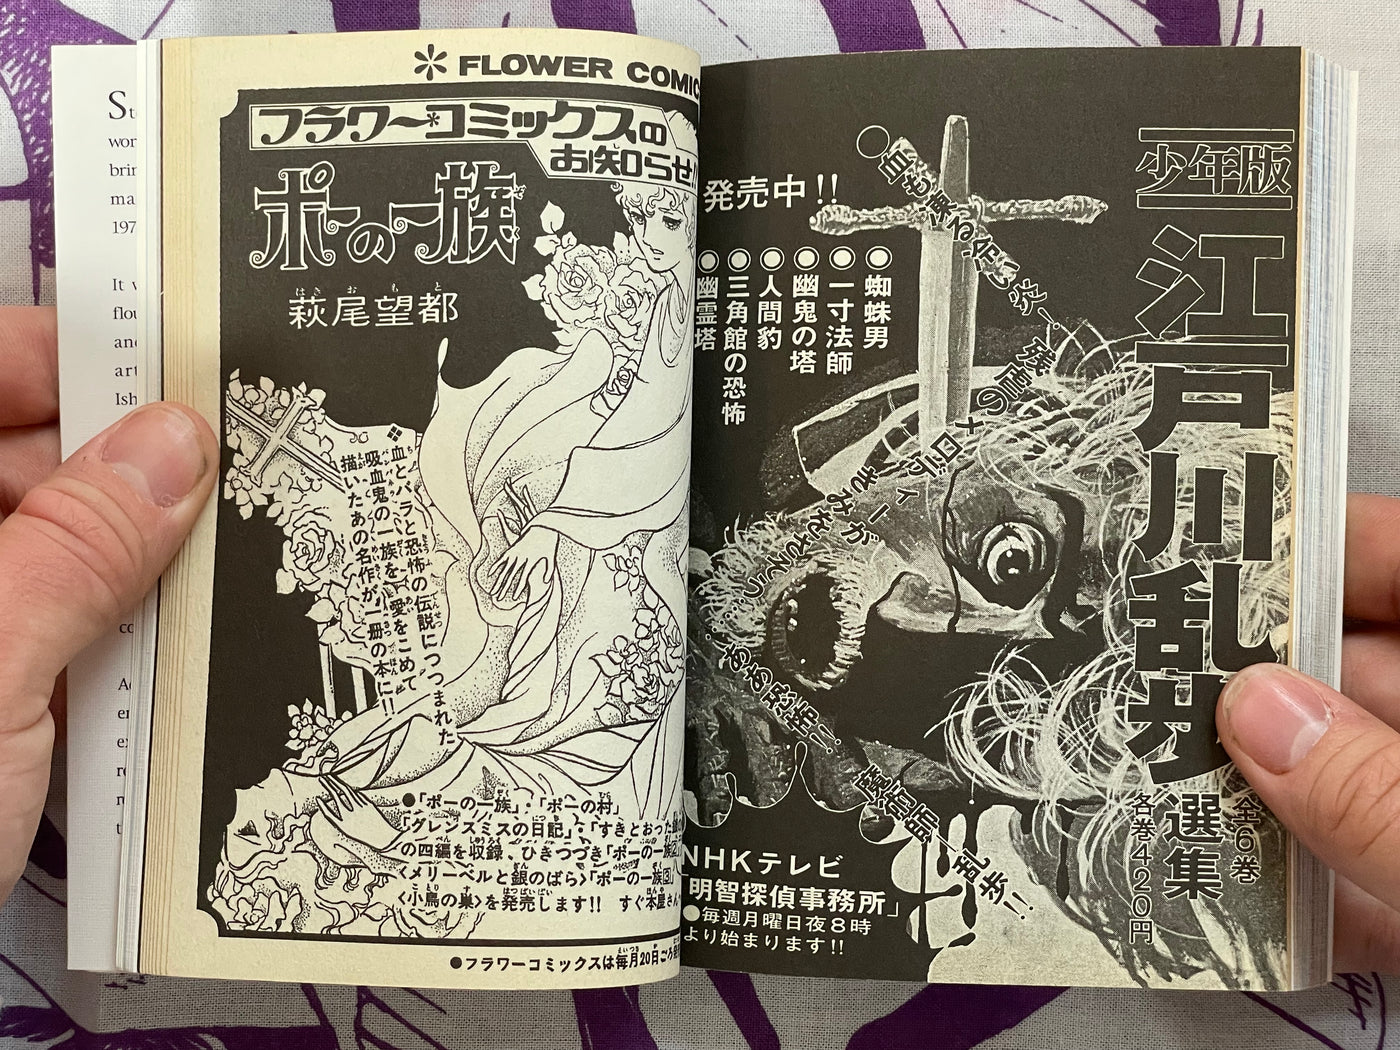 St
wor
brin
ma
197
It w
flou
and
art
Ish
co
A
en
ex
re
r
t
FLOWER COMIC
フラワーコミックスの
お知らせ!!
ポーの一族
はぎおもと
萩尾望都
血とバラと恐怖の伝説につつまれた
吸血鬼の一族を、愛をこめて
描いたあの名作が一冊の本に!!
●「ポーの一族」・「ポーの村」
「グレンスミスの日記」・「すきとおった銀
の四編を収録、ひきつづき「ポーの一族②
〈メリーベルと銀のばら〉「ポーの一族③」
〈小鳥の巣〉を発売します!! すぐ本屋さん
●フラワーコミックスは毎月20日ごろ発
少年版
江戸川乱歩
選集
全6巻
各巻420円
発売中!!
●蜘蛛男
●一寸法師
●幽鬼の塔
●人間豹
●三角館の恐怖
●幽霊塔
○血も凍る冷たい炎!残虐のメロディーきみがをさそう…ああ恐怖!!魔術師―乱歩!!
NHKテレビ
「明智探偵事務所」
●毎週月曜日夜8時
より始まります!!